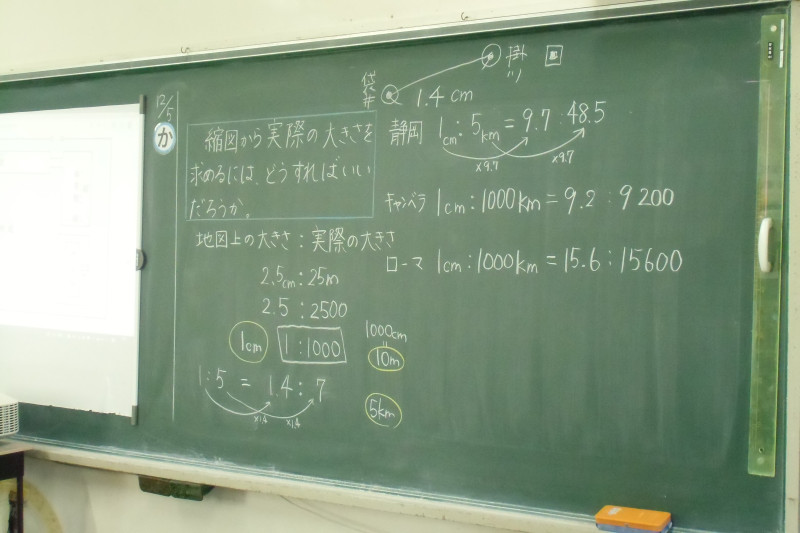 12/5
か
縮図から実際の大きさを
求めるには、どうすればいい
だろうか。
地図上の大きさ：実際の大きさ
2.5cm：25m
2.5：2500
1cm 1：1000
1000cm
=
10m
1：5 = 1.4：7
×1.4 ×1.4
5km
袋井
掛川
1.4cm
静岡 1cm：5km = 9.7：48.5
×9.7 ×9.7
キャンベラ 1cm：1000km = 9.2：9200
ローマ 1cm：1000km = 15.6：15600